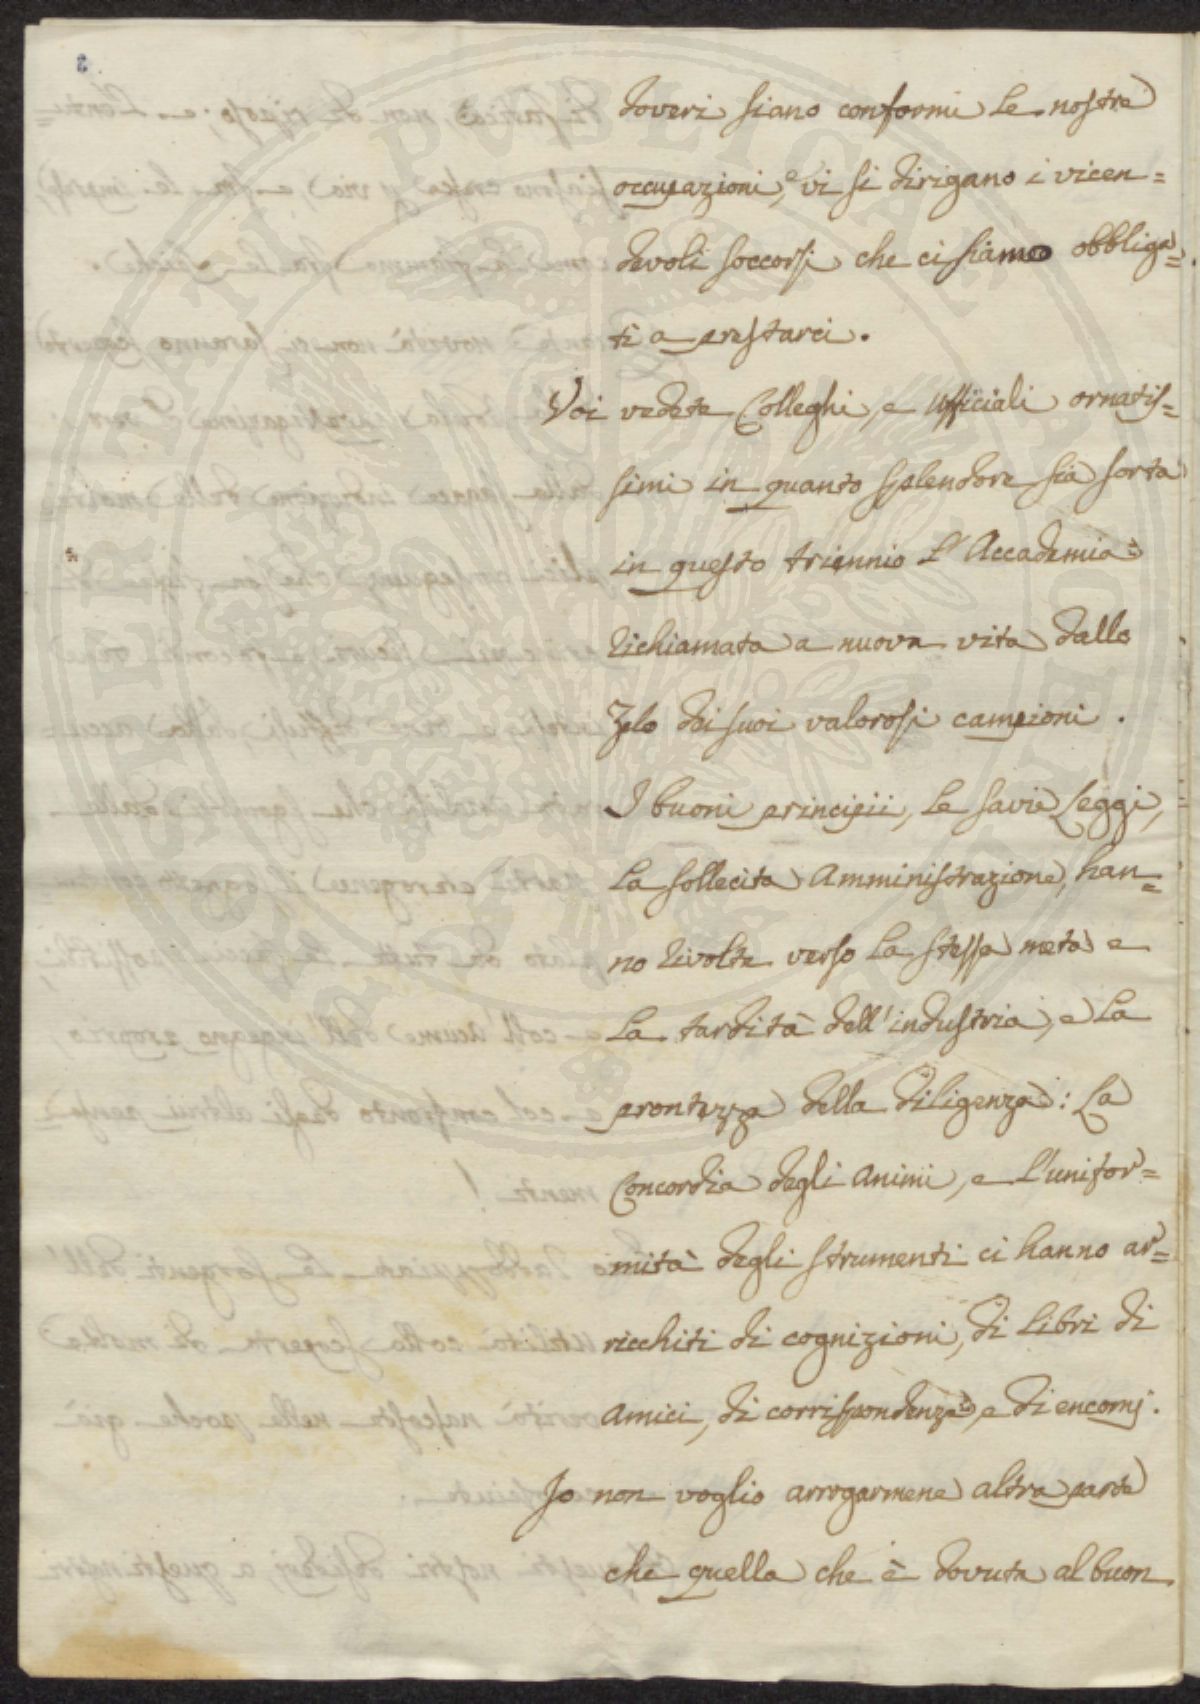 doveri siano conformi le nostre
occupazioni, e vi si dirigano i vicen=
devoli soccorsi che ci siamo obbliga=
ti a prestarci.
Voi vedete Colleghi, e Ufficiali ornatis=
simi in quanto splendore sia sorta
in questo triennio l'Accademia
richiamata a nuova vita dallo
Zelo dei suoi valorosi campioni.
I buoni principii, le savie Leggi,
la sollecita Amministrazione, han=
no rivolte verso la stessa meta e
la tardità dell'industria, e la
prontezza della diligenza: la
Concordia degli animi, e l'unifor=
mità degli strumenti ci hanno ar=
ricchiti di cognizioni, di libri di
amici, di corrispondenze, e di encomj.
Io non voglio arrogarmene altra parte
che quella che è dovuta al buon